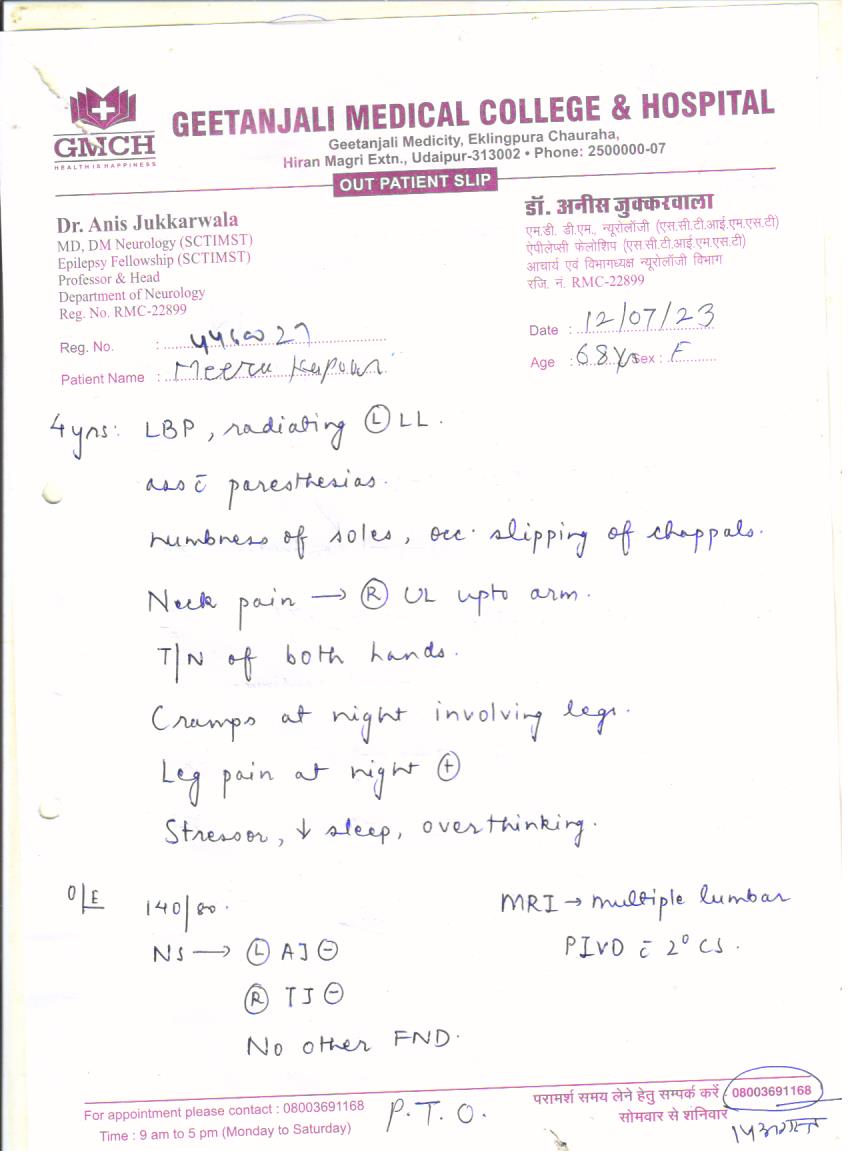 GMCH
HEALTH IS HAPPINESS
GEETANJALI MEDICAL COLLEGE & HOSPITAL
Geetanjali Medicity, Eklingpura Chauraha,
Hiran Magri Extn., Udaipur-313002 • Phone: 2500000-07
OUT PATIENT SLIP
Dr. Anis Jukkarwala
MD, DM Neurology (SCTIMST)
Epilepsy Fellowship (SCTIMST)
Professor & Head
Department of Neurology
Reg. No. RMC-22899
डॉ. अनीस जुक्करवाला
एम.डी. डी.एम., न्यूरोलॉजी (एस.सी.टी.आई.एम.एस.टी)
ऐपीलेप्सी फेलोशिप (एस.सी.टी.आई.एम.एस.टी)
आचार्य एवं विभागध्यक्ष न्यूरोलॉजी विभाग
रजि. नं. RMC-22899
Reg. No. :
Date : 12/07/23
Patient Name : Meeru Kapoor
Age : 68 Yrs Sex : F
4 yrs: LBP, radiating (L) LL.
asso c̄ paresthesias.
numbness of soles, occ. slipping of chappals.
Neck pain → (R) UL upto arm.
T/N of both hands.
Cramps at night involving legs.
Leg pain at night (+)
Stressor, ↓ sleep, overthinking.
O/E 140/80.
MRI → multiple lumbar
PIVD c̄ 2° CS.
NS → (L) AJ (-)
(R) TJ (-)
No other FND.
For appointment please contact : 08003691168
Time : 9 am to 5 pm (Monday to Saturday)
P.T.O.
परामर्श समय लेने हेतु सम्पर्क करें 08003691168
सोमवार से शनिवार